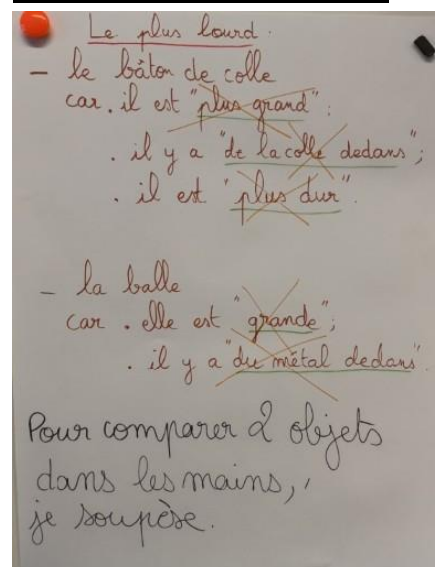 Le plus lourd.
- le bâton de colle
car . il est "plus grand" ;
. il y a "de la colle dedans" ;
. il est "plus dur".
- la balle
car . elle est "grande" ;
. il y a "du métal dedans".
Pour comparer 2 objets
dans les mains,
je soupèse.